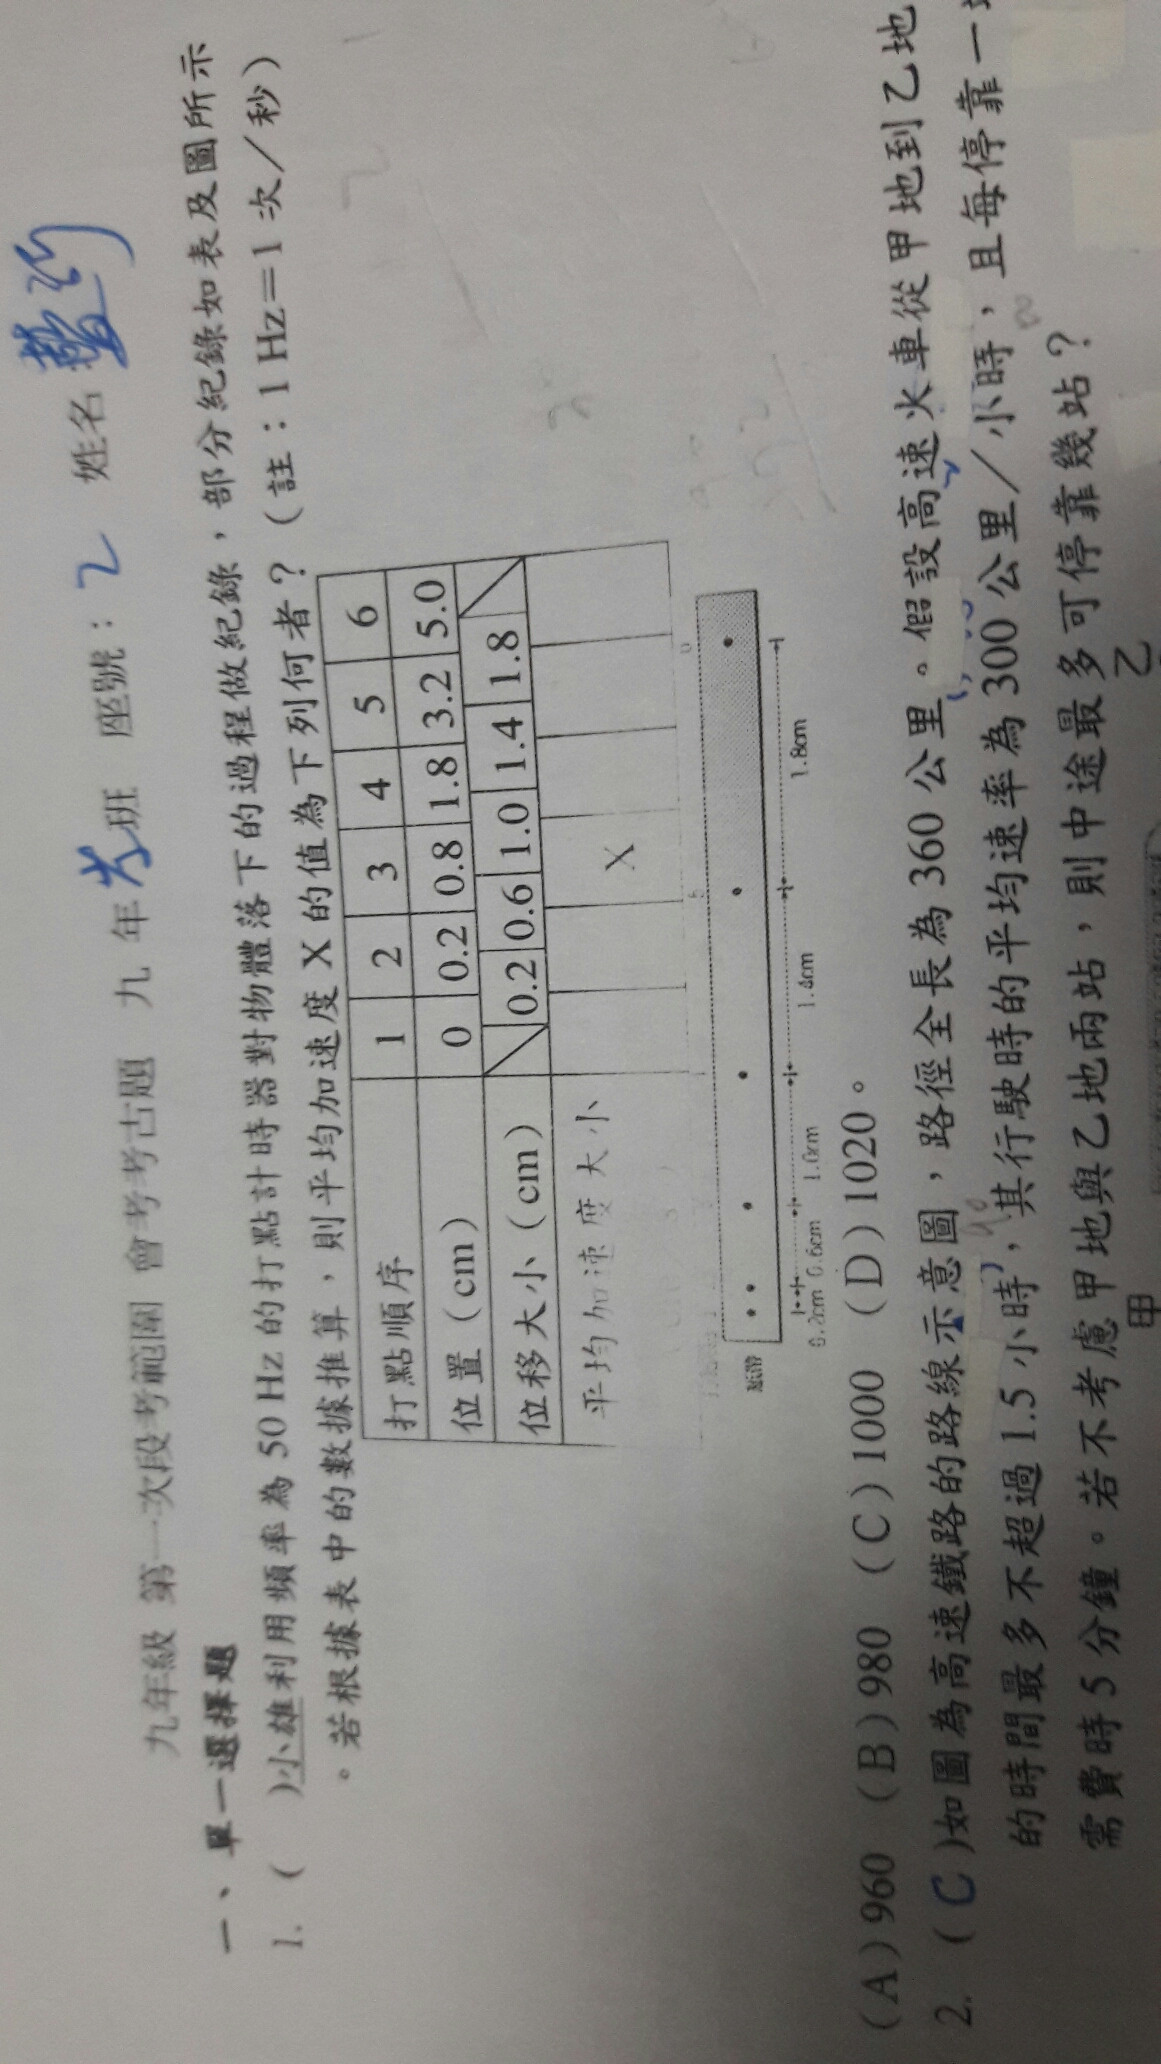 九年級 第一次段考範圍 會考考古題 九 年 班 座號：2 姓名
一、單一選擇題
1. (  )小雄利用頻率為 50 Hz 的打點計時器對物體落下的過程做紀錄，部分紀錄如表及圖所示
。若根據表中的數據推算，則平均加速度 X 的值為下列何者？（註：1 Hz＝1 次／秒）
打點順序 1 2 3 4 5 6
位置（cm） 0 0.2 0.8 1.8 3.2 5.0
位移大小（cm） 0.2 0.6 1.0 1.4 1.8
平均加速度大小 X
紙帶
0.2cm 0.6cm 1.0cm 1.4cm 1.8cm
（A）960 （B）980 （C）1000 （D）1020。
2. ( C )如圖為高速鐵路的路線示意圖，路徑全長為 360 公里。假設高速火車從甲地到乙地
的時間最多不超過 1.5 小時，其行駛時的平均速率為 300 公里／小時，且每停靠一
需費時 5 分鐘。若不考慮甲地與乙地兩站，則中途最多可停靠幾站？
甲 乙